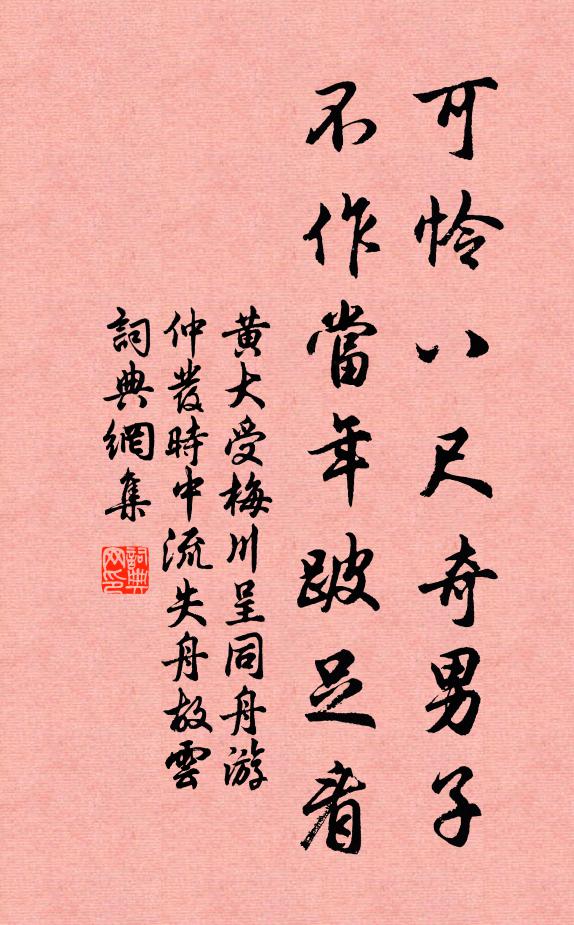 可怜八尺奇男子
不作當年跛足者
黄大受梅川呈同舟游
仲發時中流失舟故雲
詞典網集
詞典
网印